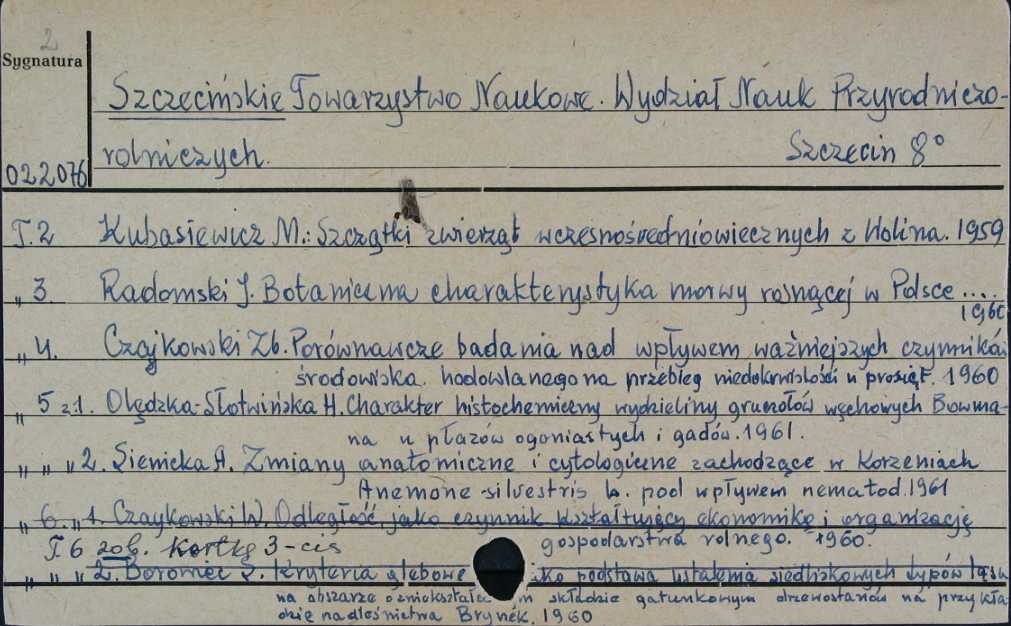 2
Sygnatura
Szczecińskie Towarzystwo Naukowe. Wydział Nauk Przyrodniczo-
rolniczych. Szczecin 8°
022076
T.2 Kubasiewicz M.: Szczątki zwierząt wczesnośredniowiecznych z Wolina. 1959
„ 3. Radomski J. Botaniczna charakterystyka morwy rosnącej w Polsce ....
1960
„ 4. Czajkowski Zb. Porównawcze badania nad wpływem ważniejszych czynników
środowiska hodowlanego na przebieg niedokrwistości u prosiąt. 1960
„ 5 z.1. Olędzka-Słotwińska H. Charakter histochemiczny wydzieliny gruczołów węchowych Bowma-
na u płazów ogoniastych i gadów. 1961.
„ „ „ 2. Sienicka A. Zmiany anatomiczne i cytologiczne zachodzące w korzeniach
Anemone silvestris L. pod wpływem nematod. 1961
„ 6. „ 1. Czaykowski W. Odległość jako czynnik kształtujący ekonomikę i organizację
gospodarstwa rolnego. 1960.
T. 6 zob. kartkę 3-cią
„ „ „ 2. Borowiec S. Kryteria glebowe jako podstawa ustalenia siedliskowych typów lasu
na obszarze o zniekształconym składzie gatunkowym drzewostanów na przykła-
dzie nadleśnictwa Brynek. 1960